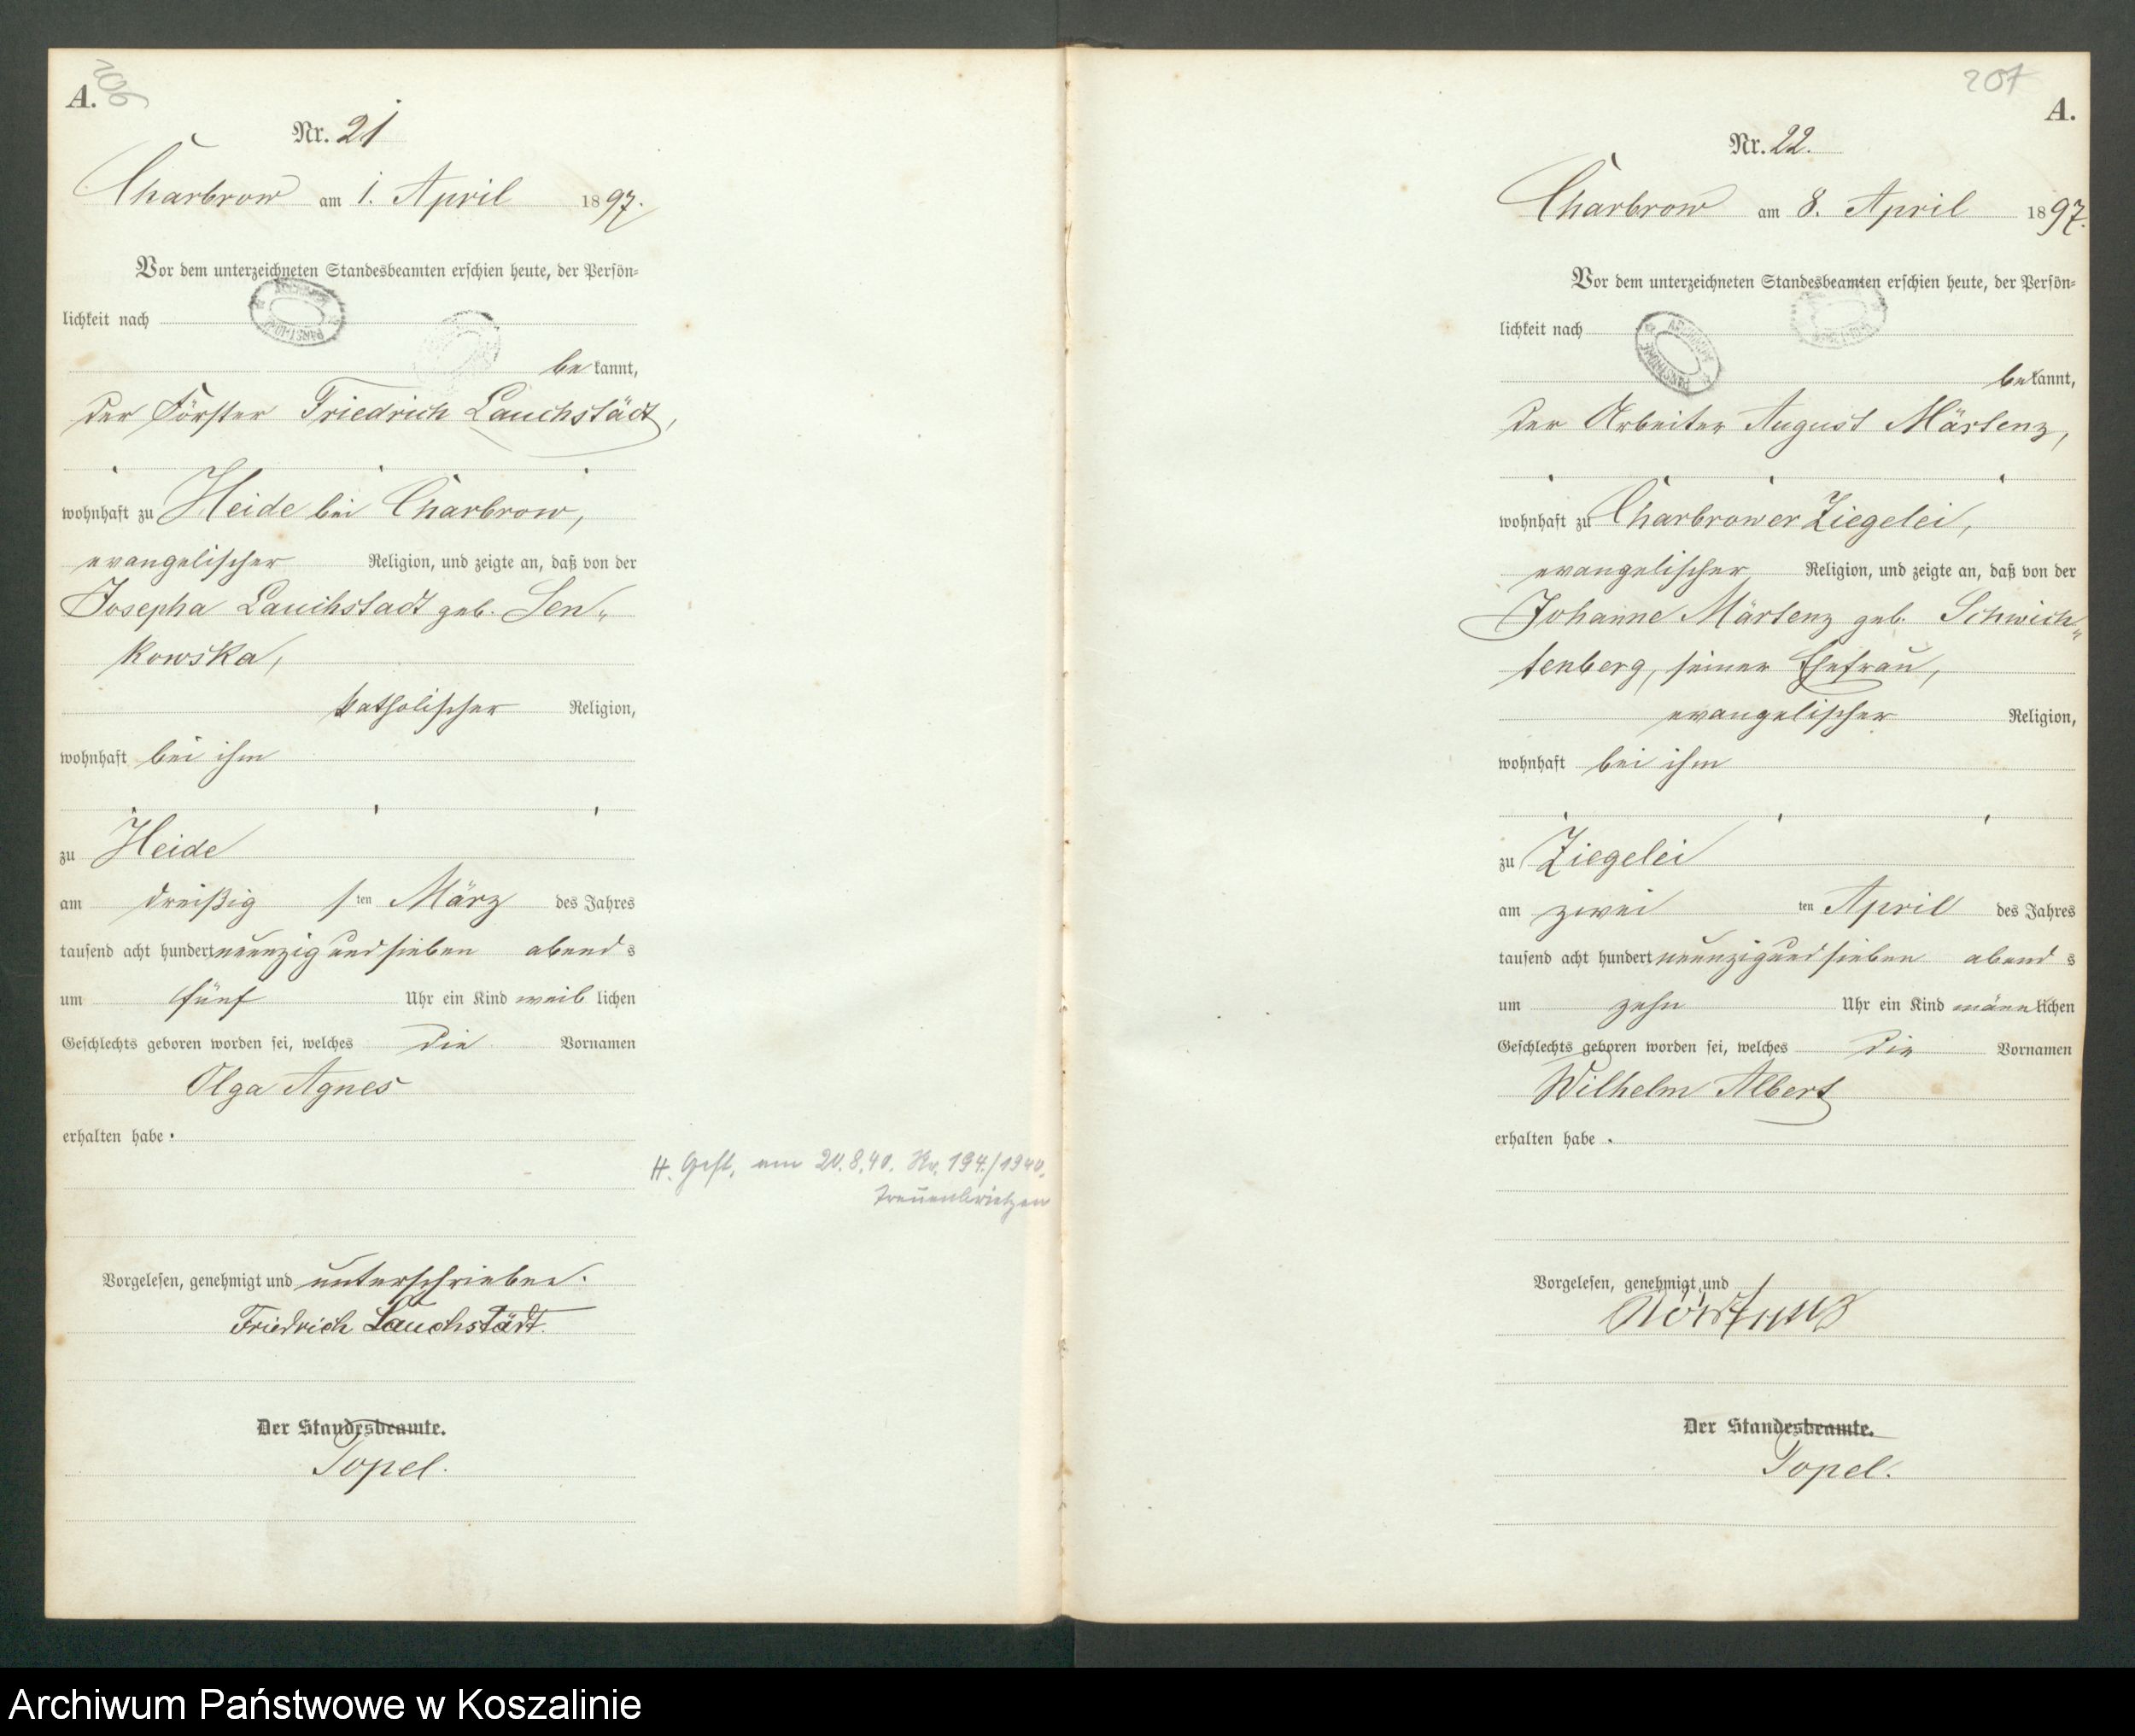 206
A.
Nr. 21
Charbrow am 1. April 1897.
Vor dem unterzeichneten Standesbeamten erschien heute, der Persön-
lichkeit nach
bekannt,
der Förster Friedrich Lauchstädt,
wohnhaft zu Heide bei Charbrow,
evangelischer Religion, und zeigte an, daß von der
Josepha Lauchstädt geb. Sen„
kowska,
katholischer Religion,
wohnhaft bei ihm
zu Heide
am dreißig sten März des Jahres
tausend acht hundert neunzig und sieben abends
um fünf Uhr ein Kind weiblichen
Geschlechts geboren worden sei, welches die Vornamen
Olga Agnes
erhalten habe.
H. Gest. am 20.8.40. Nr. 194./1940.
Treuenbrietzen
Vorgelesen, genehmigt und unterschrieben.
Friedrich Lauchstädt.
Der Standesbeamte.
Topel.
207
A.
Nr. 22.
Charbrow am 8. April 1897.
Vor dem unterzeichneten Standesbeamten erschien heute, der Persön-
lichkeit nach
bekannt,
der Arbeiter August Märtenz,
wohnhaft zu Charbrower Ziegelei,
evangelischer Religion, und zeigte an, daß von der
Johanne Märtenz geb. Schwich„
tenberg, seiner Ehefrau,
evangelischer Religion,
wohnhaft bei ihm
zu Ziegelei
am zwei ten April des Jahres
tausend acht hundert neunzig und sieben abends
um zehn Uhr ein Kind männlichen
Geschlechts geboren worden sei, welches die Vornamen
Wilhelm Albert
erhalten habe.
Vorgelesen, genehmigt und
Der Standesbeamte.
Topel.
Archiwum Państwowe w Koszalinie